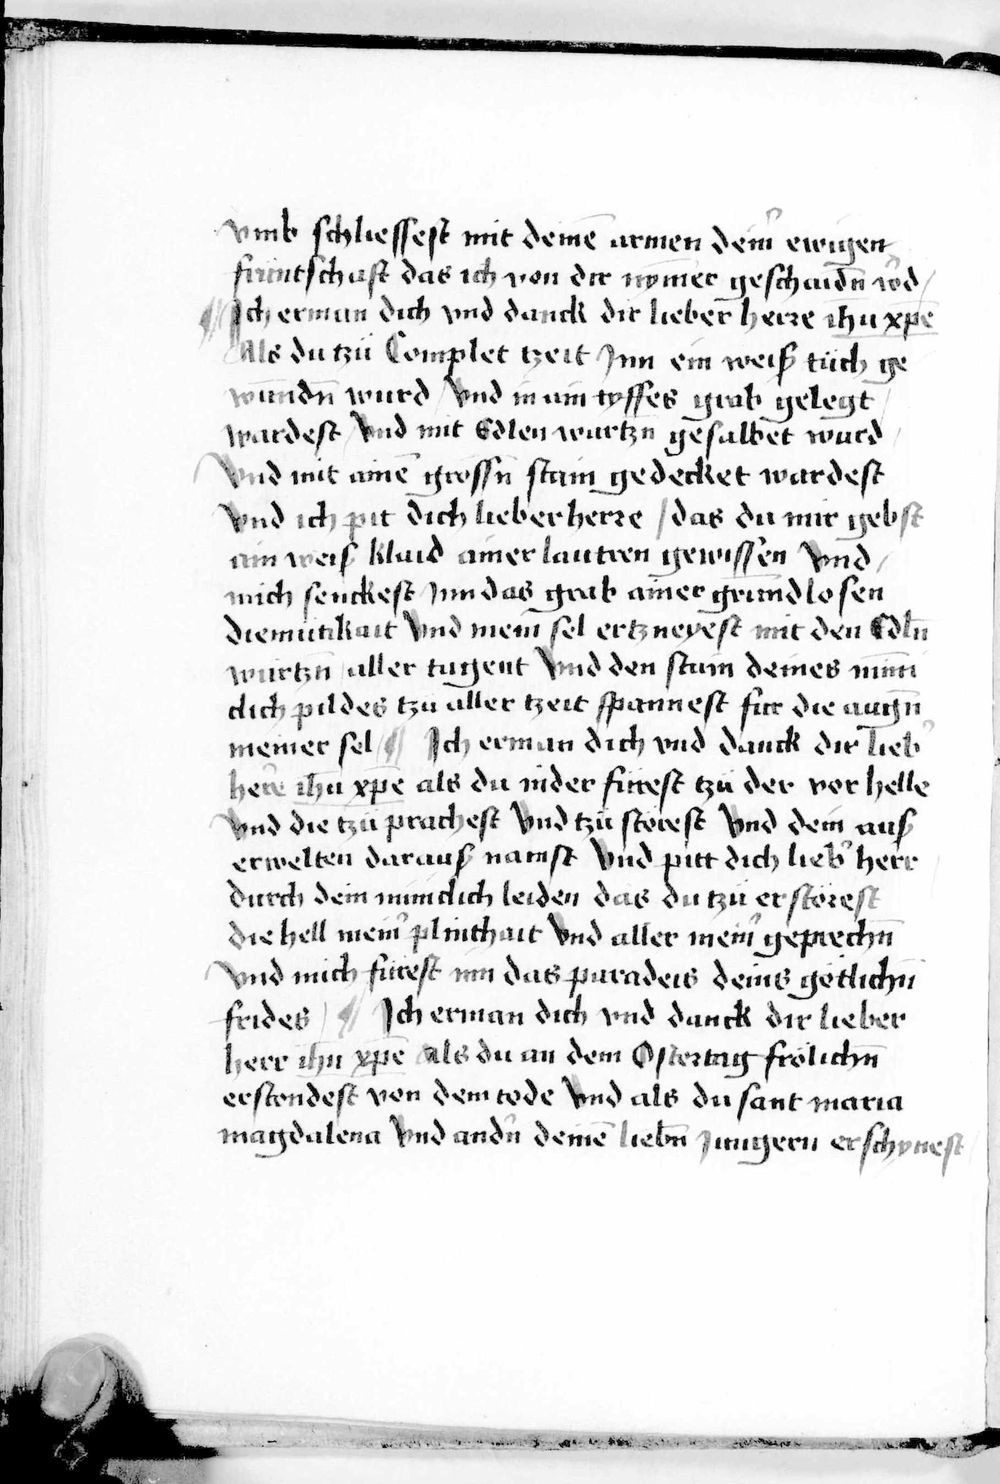 vmb schliessest mit deinē armen dein̄ ewigen
früntschaft das ich von dir nȳmer geschaidn̄ w̄d /
¶ Ich erman dich vnd danck dir lieber herre ih̄u xp̄e
Als du tzů Complet tzeit Inn ein weiß tůch ge
wūndn̄ wurd / Vnd in ain tyffes grab gelegt /
wardest / Vnd mit Edlen wůrtzn̄ gesalbet wůrd /
Vnd mit ainē grossn̄ stain gedecket wardest
Vnd ich pit dich lieber herre / das du mir gebst
ain weiß klaid ainer lautren gewissen Vnd /
mich senckest Inn das grab ainer grundlosen
diemütikait Vnd mein sel ertzneyest mit den Edln̄
würtzn̄ / aller tugent Vnd den stain deines min̄i
clich pildes tzů aller tzeit spannest für die augn̄
meiner sel ¶ Ich erman dich vnd danck dir lieb̾
her̄e ih̄u xp̄e als du nider fürest tzů der vor helle
Vnd die tzů prachest Vnd tzů störest Vnd dein auß
erwelten darauß namst Vnd pitt dich lieb̾ herr
durch dein minīclich leiden das du tzů erstörest
die hell mein̾ plinthait Vnd aller mein̾ geprechn̄
Vnd mich fürest inn das paradeis deins götlichn̄
frides / ¶ Ich erman dich vnd danck dir lieber
herr ih̄u xp̄e Als du an dem Ostertag frölichn̄
erstondest von dem tode Vnd als du sant maria
magdalena Vnd andn̄ deinē liebn̄ Jungern erschynest